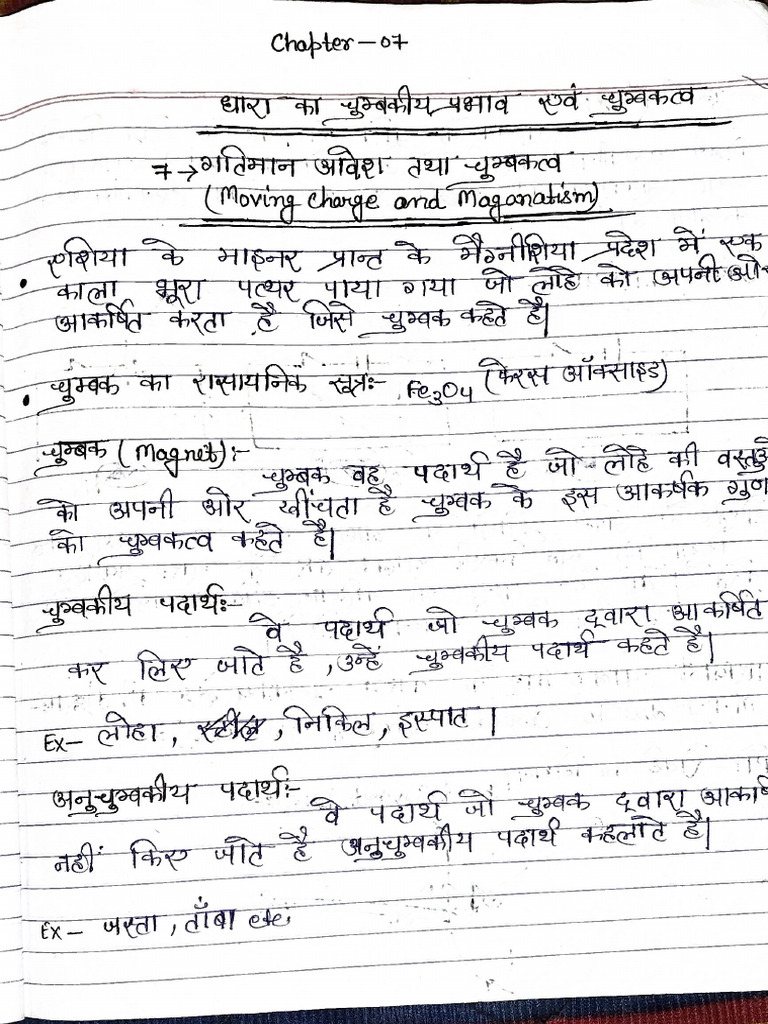 Chapter-07
धारा का चुम्बकीय प्रभाव एवं चुम्बकत्व
7→ गतिमान आवेश तथा चुम्बकत्व
(Moving Charge and Maganatism)
एशिया के माइनर प्रान्त के मैग्नीशिया प्रदेश में एक
काला भूरा पत्थर पाया गया जो लोहे को अपनी ओर
आकर्षित करता है जिसे चुम्बक कहते है|
चुम्बक का रासायनिक सूत्रः- Fe3O4 (फेरस ऑक्साइड)
चुम्बक (Magnet):-
चुम्बक वह पदार्थ है जो लोहे की वस्तुओ
को अपनी ओर खींचता है चुम्बक के इस आकर्षक गुण
को चुम्बकत्व कहते है|
चुम्बकीय पदार्थः-
वे पदार्थ जो चुम्बक द्वारा आकर्षित
कर लिए जाते है, उन्हें चुम्बकीय पदार्थ कहते है|
Ex- लोहा, , निकिल, इस्पात |
अनुचुम्बकीय पदार्थः-
वे पदार्थ जो चुम्बक द्वारा आकर्षि
नहीं किए जाते है अनुचुम्बकीय पदार्थ कहलाते है|
Ex- जस्ता, ताँबा etc.